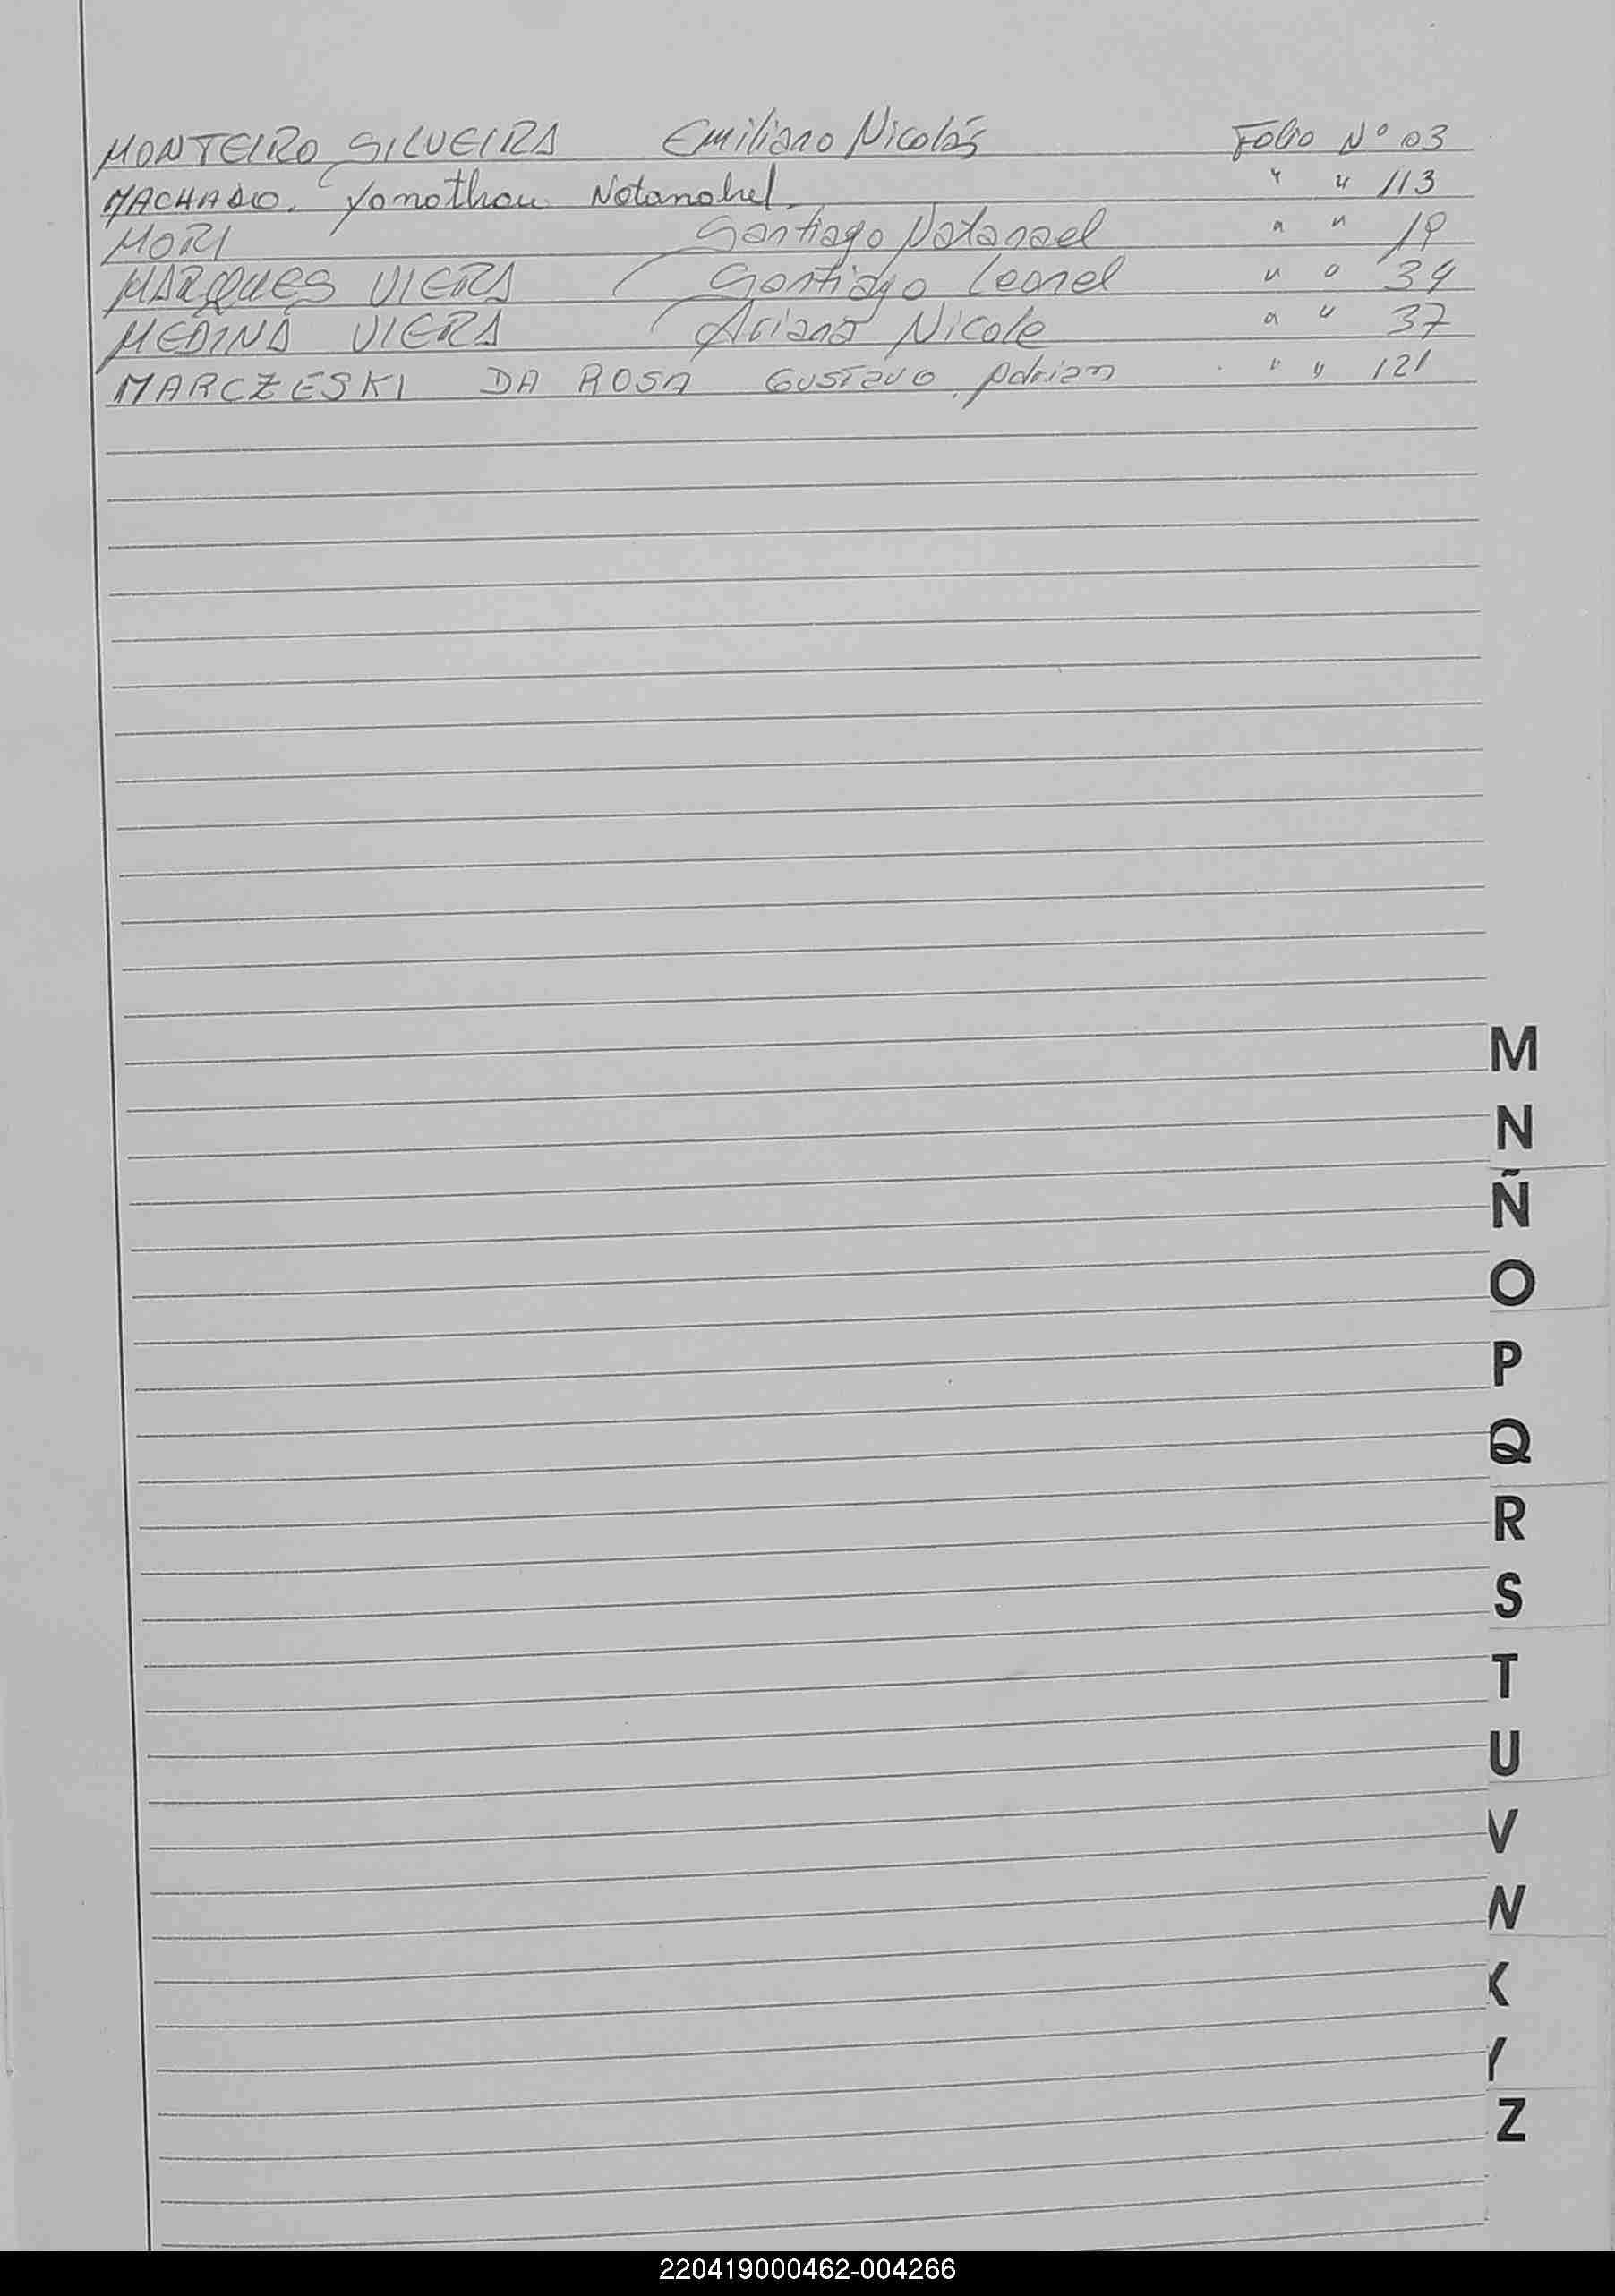 MONTEIRO SILVEIRA Emiliano Nicolás Folio N° 03
MACHADO. Yonathan Natanahel. " " 113
MORI Santiago Natanael " " 19
MARQUES VIERA Santiago Leonel " " 34
MEDINA VIERA Ariana Nicole " " 37
MARCZESKI DA ROSA Gustavo Adrian " " 121
M
N
Ñ
O
P
Q
R
S
T
U
V
W
X
Y
Z
220419000462-004266